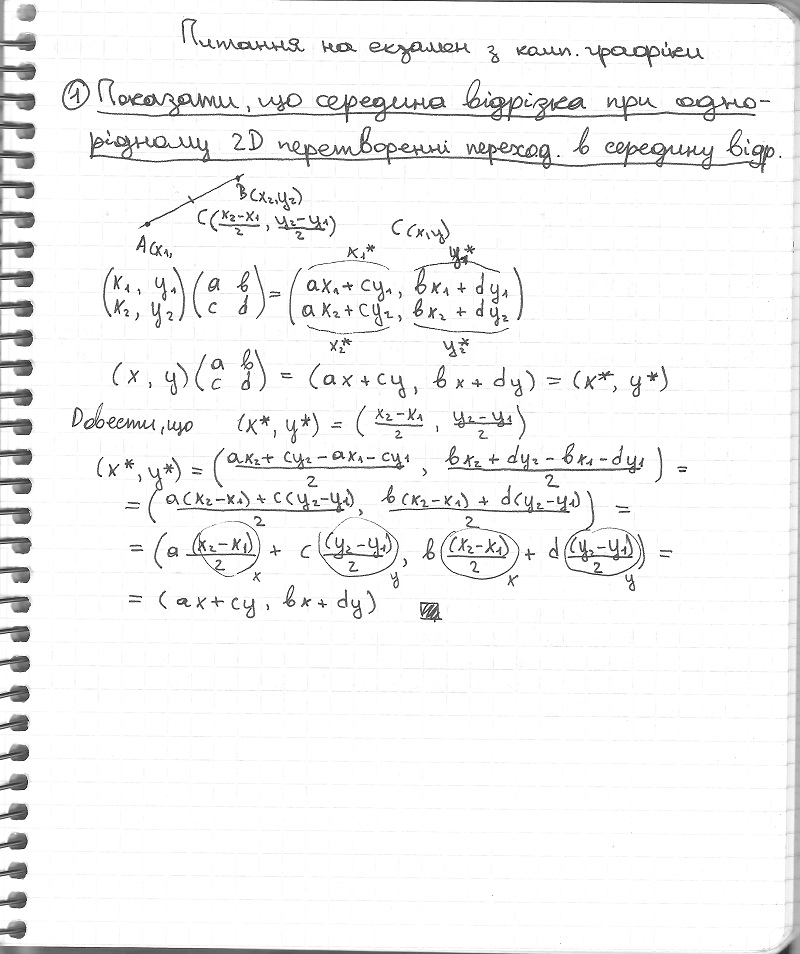 Питання на екзамен з комп. графіки
① Показати, що середина відрізка при одно-
рідному 2D перетворенні переход. в середину відр.
B(x₂,y₂)
C((x₂-x₁)/2, (y₂-y₁)/2) C(x,y)
A(x₁,
x₁* y₁*
(x₁, y₁; x₂, y₂)(a b; c d) = (ax₁+cy₁, bx₁+dy₁; ax₂+cy₂, bx₂+dy₂)
x₂* y₂*
(x, y)(a b; c d) = (ax+cy, bx+dy) = (x*, y*)
Довести, що (x*, y*) = ((x₂-x₁)/2, (y₂-y₁)/2)
(x*, y*) = ((ax₂+cy₂-ax₁-cy₁)/2, (bx₂+dy₂-bx₁-dy₁)/2) =
= ((a(x₂-x₁)+c(y₂-y₁))/2, (b(x₂-x₁)+d(y₂-y₁))/2) =
= (a (x₂-x₁)/2 + c (y₂-y₁)/2, b (x₂-x₁)/2 + d (y₂-y₁)/2) =
x y x y
= (ax+cy, bx+dy)